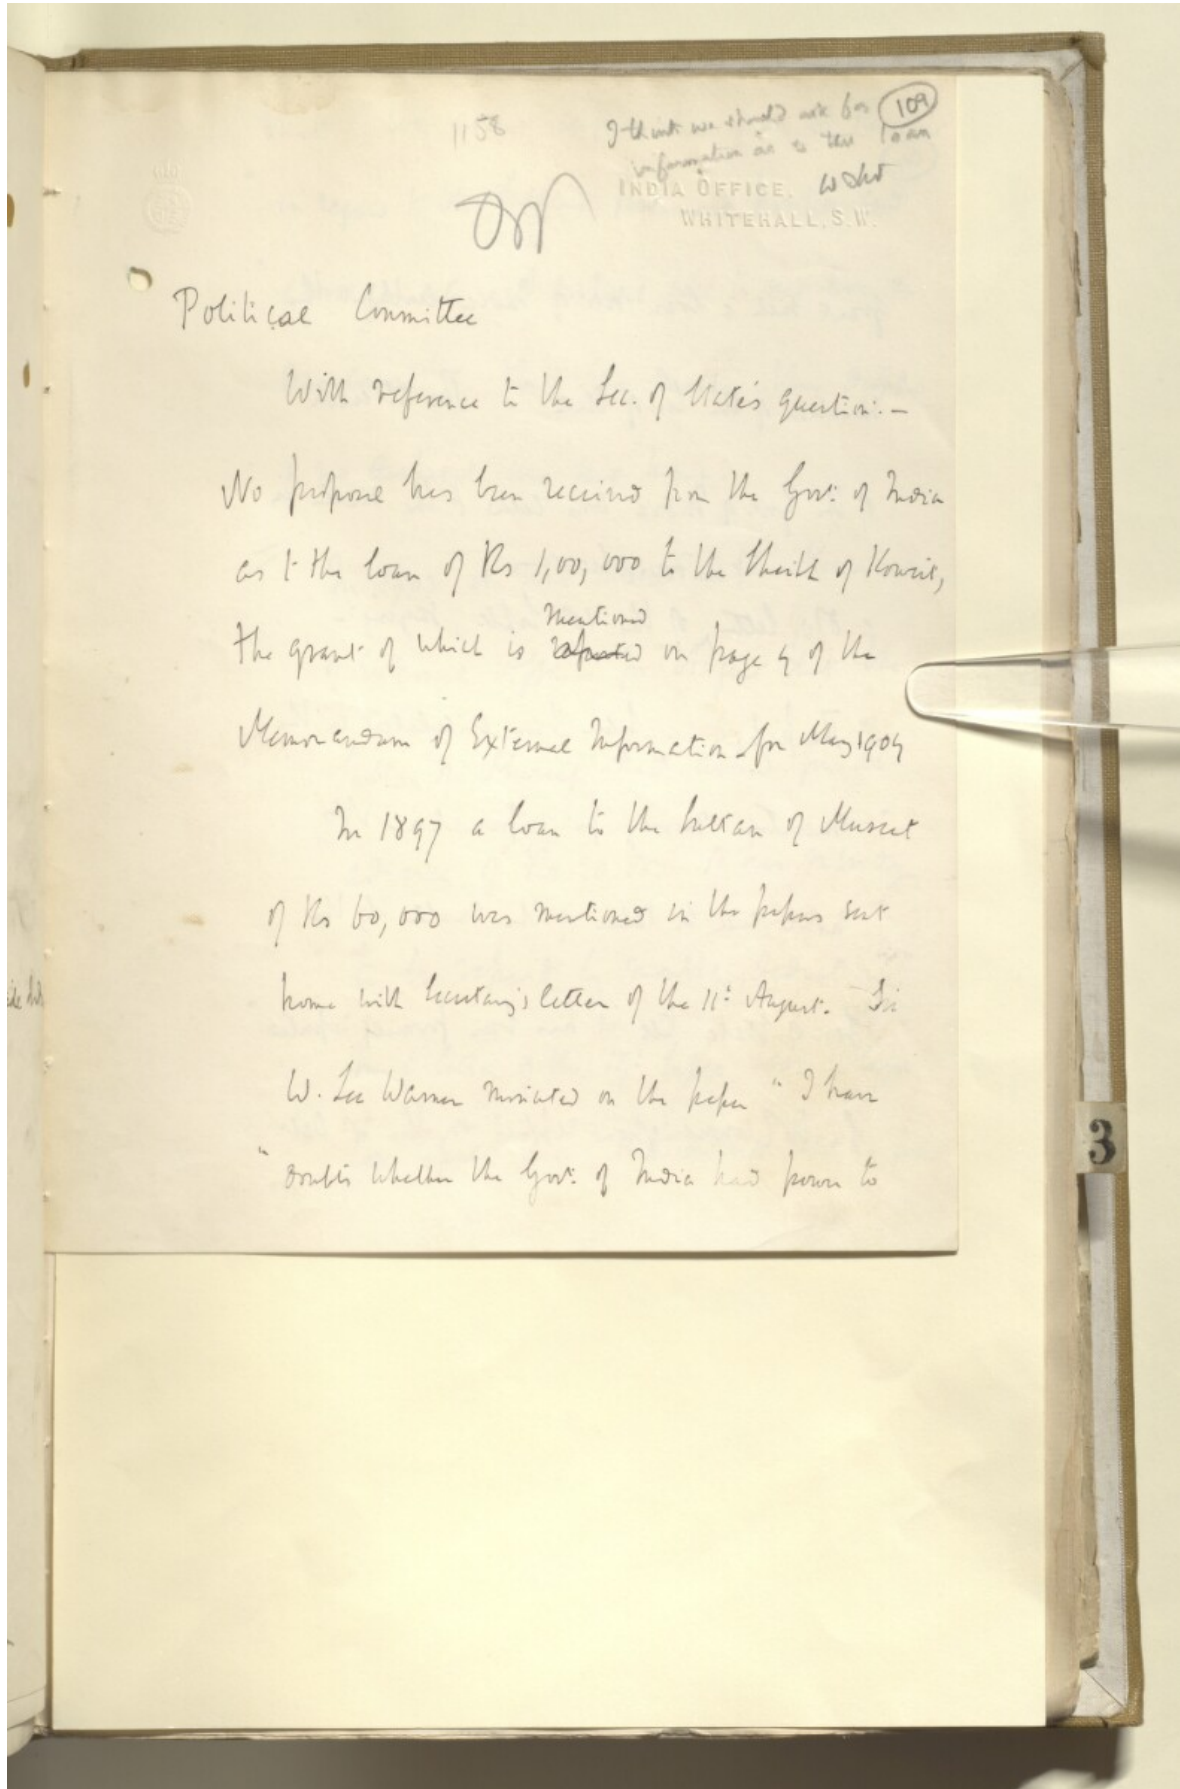 1158
109
I think we should ask for
information as to this loan
INDIA OFFICE.
WHITEHALL, S.W.
Political Committee
With reference to the Sec. of State's question:—
No proposal has been received from the Govt: of India
as to the loan of Rs 1,00,000 to the Sheikh of Koweit,
mentioned
the grant of which is reported on page 4 of the
Memorandum of External Information for May 1904
In 1897 a loan to the Sultan of Muscat
of Rs 60,000 was mentioned in the papers sent
home with Secretary's letter of the 11th August. Sir
W. Lee Warner minuted on the paper "I have
"doubts whether the Govt: of India had power to
3